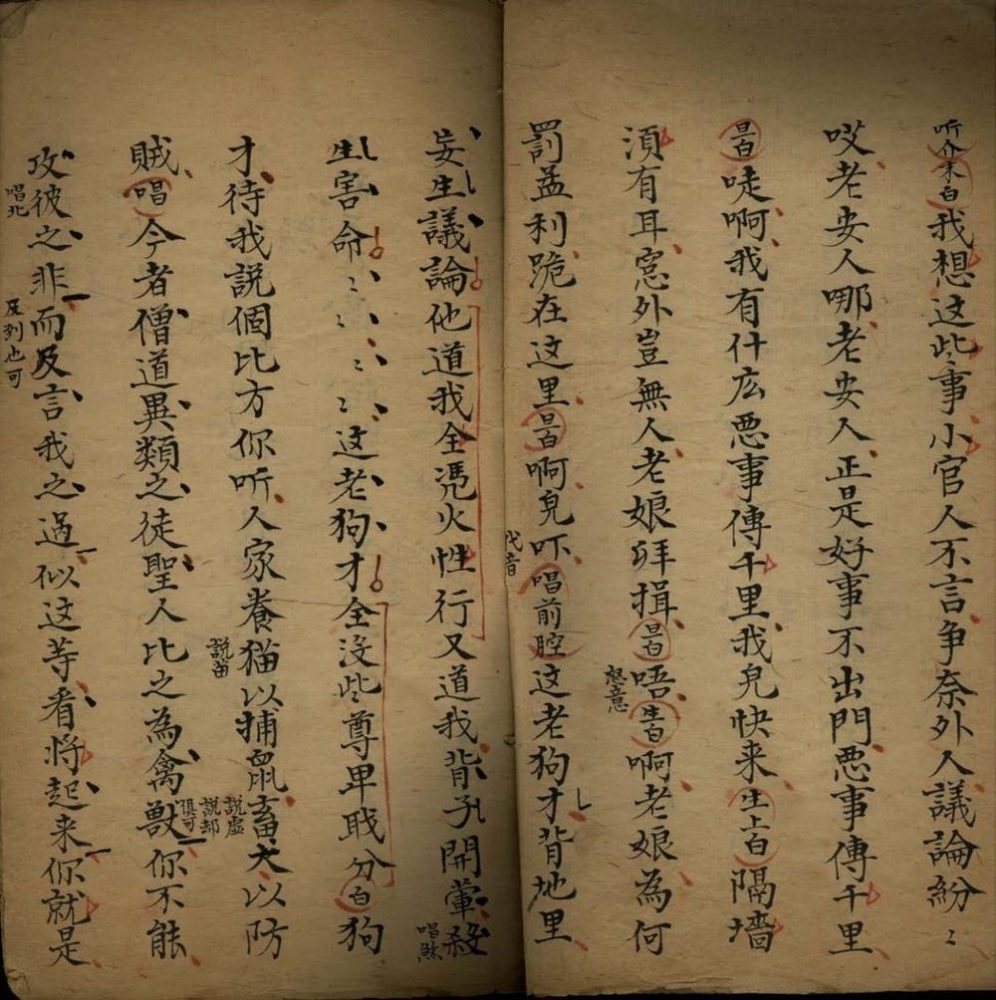 听介末白我想这些事小官人不言争奈外人議論紛〻
哎老安人哪老安人正是好事不出門恶事傳千里
昌白唗啊我有什庅恶事傳千里我皃快来生上白隔墻
湏有耳窓外豈無人老娘拜揖昌白唔生白啊老娘為何
怒意
罰孟利跪在这里昌白啊皃吓唱前腔这老狗才背地里
代音
妄生議論他道我全凭火性行又道我背子開葷殺
唱煞
生害命〻〻〻〻这老狗才全没些尊卑戝分白狗
才待我説個比方你听人家養猫以捕鼠畜犬以防
説苗
説虚
説却
俱可
賊唱今者僧道異類之徒聖人比之為禽獸你不能
攻彼之非而及言我之過似这等看将起来你就是
唱北
及列也可